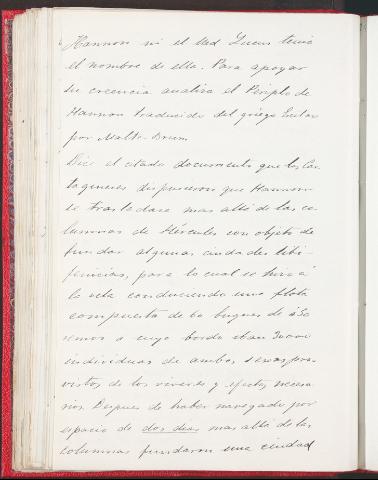 Hannon ni el Uad Lucus tenia
el nombre de ella. Para apoyar
su creencia analiza el Periplo de
Hannon traducido del griego
por Malte-Brun
Dice el citado documento que los Car
tagineses dispusieron que Hannon
se trasladase mas allá de las co
lumnas de Hércules con objeto de
fundar algunas ciudades libi-
fenicias, para lo cual se hizo á
la vela conduciendo una flota
compuesta de 60 buques de á 50
remos a cuyo bordo iban 30000
individuos de ambos sexos pro-
vistos de los viveres y efectos necesa
rios. Despues de haber navegado por
espacio de dos dias mas allá de las
columnas fundaron una ciudad